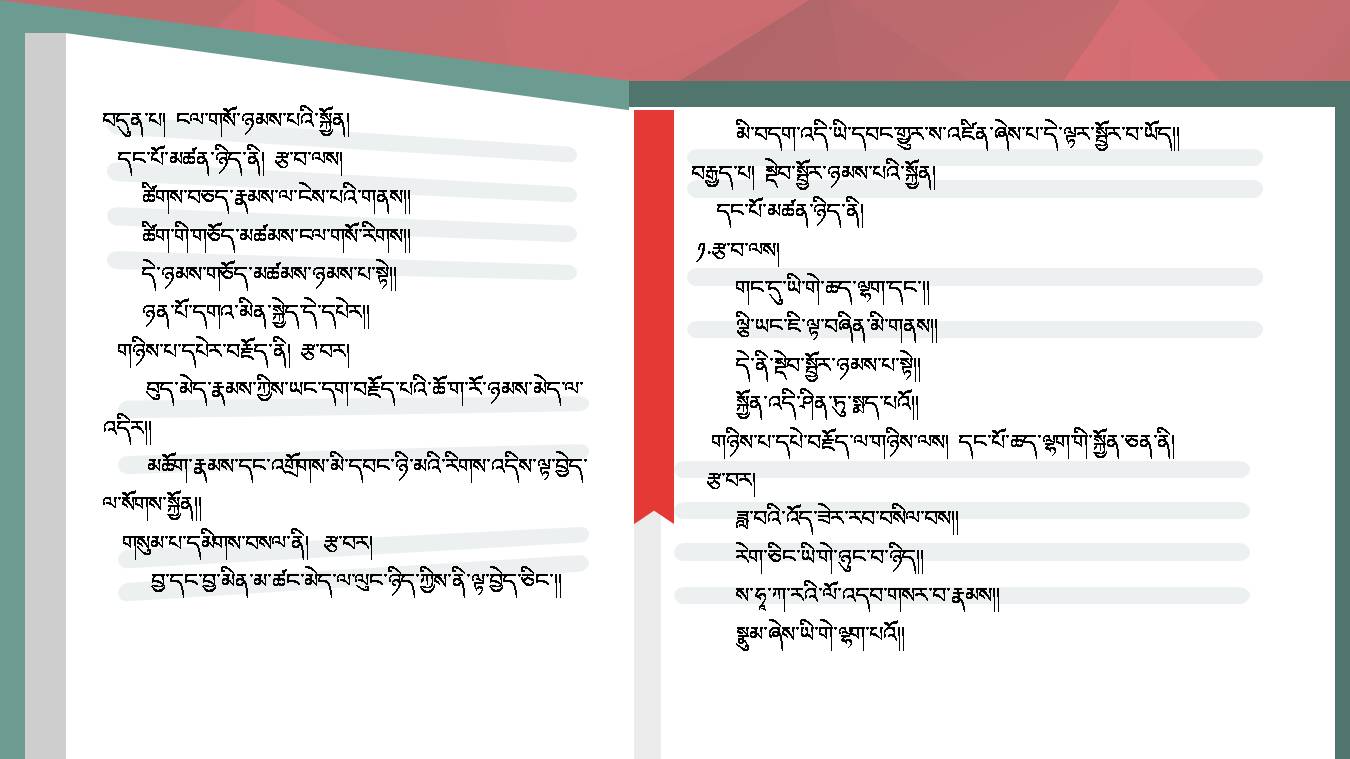 བདུན་པ། ངལ་གསོ་ཉམས་པའི་སྐྱོན།
དང་པོ་མཚན་ཉིད་ནི། རྩ་བ་ལས།
ཚིགས་བཅད་རྣམས་ལ་ངེས་པའི་གནས།།
ཚིག་གི་གཅོད་མཚམས་ངལ་གསོ་རིགས།།
དེ་ཉམས་གཅོད་མཚམས་ཉམས་པ་སྟེ།།
ཉན་པོ་དགའ་མིན་སྐྱེད་དེ་དཔེར།།
གཉིས་པ་དཔེར་བརྗོད་ནི། རྩ་བར།
བུད་མེད་རྣམས་ཀྱིས་ཡང་དག་བརྗོད་པའི་ཆོ་ག་རོ་ཉམས་མེད་ལ་
འདིར།།
མཆོག་རྣམས་དང་འགྲོགས་མི་དབང་ཉི་མའི་རིགས་འདིས་ལྟ་བྱེད་
ལ་སོགས་སྐྱོན།།
གསུམ་པ་དམིགས་བསལ་ནི། རྩ་བར།
བྱ་དང་བྱ་མིན་མ་ཚང་མེད་ལ་ལུང་ཉིད་ཀྱིས་ནི་ལྟ་བྱེད་ཅིང་།།
མི་བདག་འདི་ཡི་དབང་གྱུར་ས་འཛིན་ཞེས་པ་དེ་ལྟར་སྦྱོར་བ་ཡོད།།
བརྒྱད་པ། སྡེབ་སྦྱོར་ཉམས་པའི་སྐྱོན།
དང་པོ་མཚན་ཉིད་ནི།
༡.རྩ་བ་ལས།
གང་དུ་ཡི་གེ་ཆད་ལྷག་དང་།།
ལྕི་ཡང་ཇི་ལྟ་བཞིན་མི་གནས།།
དེ་ནི་སྡེབ་སྦྱོར་ཉམས་པ་སྟེ།།
སྐྱོན་འདི་ཤིན་ཏུ་སྨད་པའོ།།
གཉིས་པ་དཔེ་བརྗོད་ལ་གཉིས་ལས། དང་པོ་ཆད་ལྷག་གི་སྐྱོན་ཅན་ནི།
རྩ་བར།
ཟླ་བའི་འོད་ཟེར་རབ་བསིལ་བས།།
རེག་ཅིང་ཡི་གེ་ཉུང་བ་ཉིད།།
ས་ཧ་ཀ་རའི་ལོ་འདབ་གསར་བ་རྣམས།།
སྣུམ་ཞེས་ཡི་གེ་ལྷག་པའོ།།